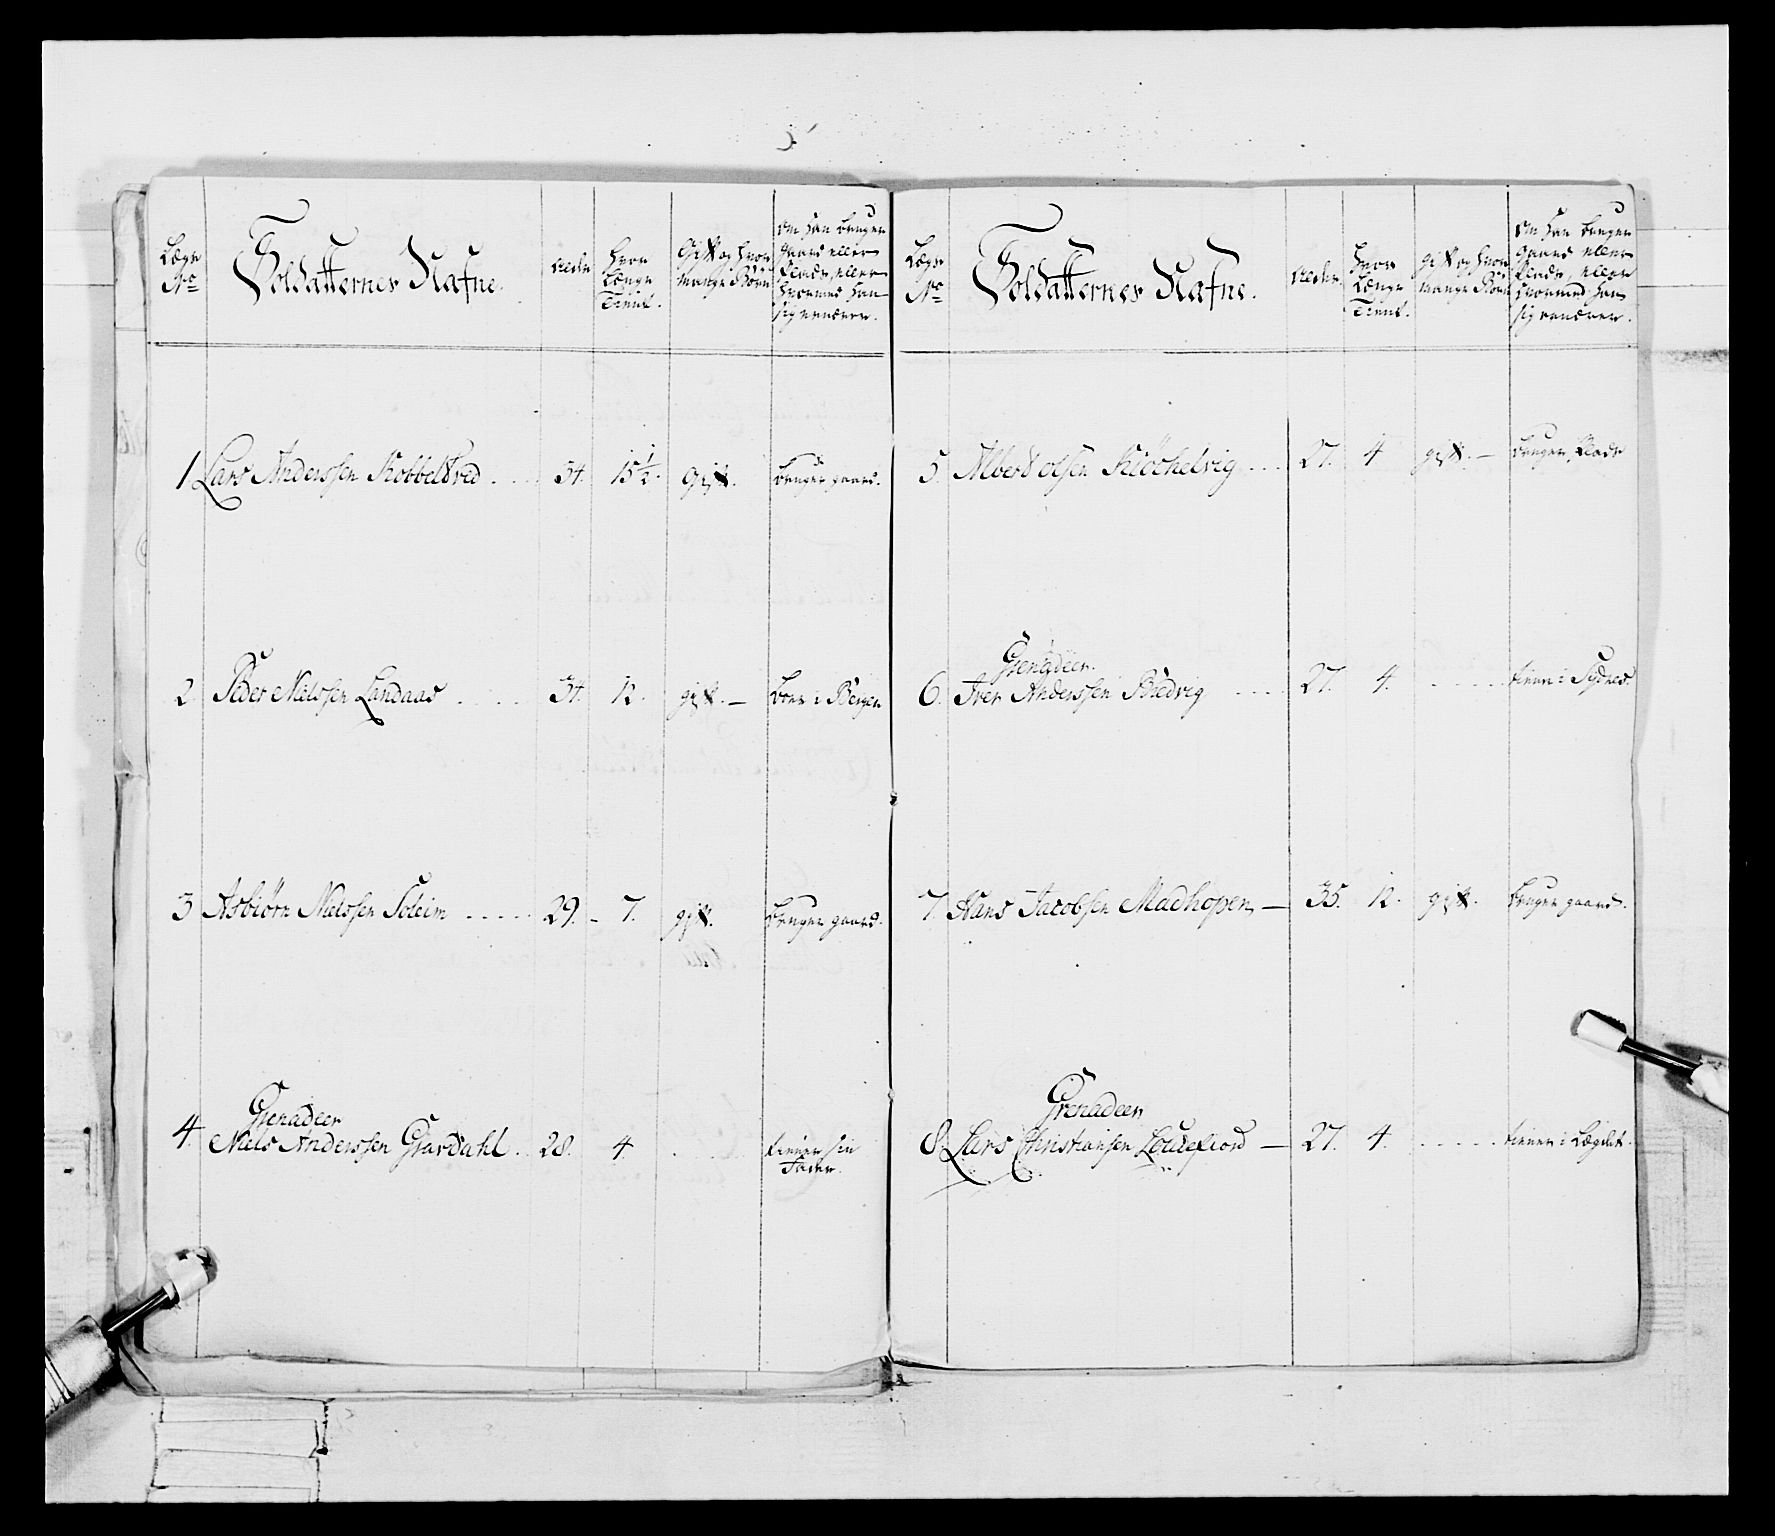 Lægs No
Soldatternes Nafne.
Alder
Hvor Længe Tient.
Gift og hvor mange Börn
Om han bruger gaard eller Plads, eller hvormed han sig ernærer.
1 Lars Anderssen Kobbeltved . . 34. 15 1/2. Gift. bruger gaard.
2. Peder Nielssen Landaas . . . . 34. 12. gift. — boer i Bergen
3 Asbiörn Nielssen Soleim . . . . . 29. – 7. gift. bruger gaard.
Grenadeer
4. Niels Anderssen Giardahl . 28. 4. . . . tiener sin Fader.
Lægs No
Soldatternes Nafne.
Alder.
Hvor Længe Tient.
gift og hvor mange Börn
Om han bruger gaard eller Plads, eller hvormed han sig ernærer.
5. Albert olsen Kiöchelvig . . . 27. 4 gift. — bruger Plads
Grenadeer.
6. Iver Anderssen Bredvig . . . . 27. 4. . . . . . tiener i Sydnes.
7. Hans Jacobsen Madhopen, — 35. 12. gift. bruger gaard.
Grenadeer
8. Lars Christiansen — 27. 4. . . . . . tiener i Lægdet.